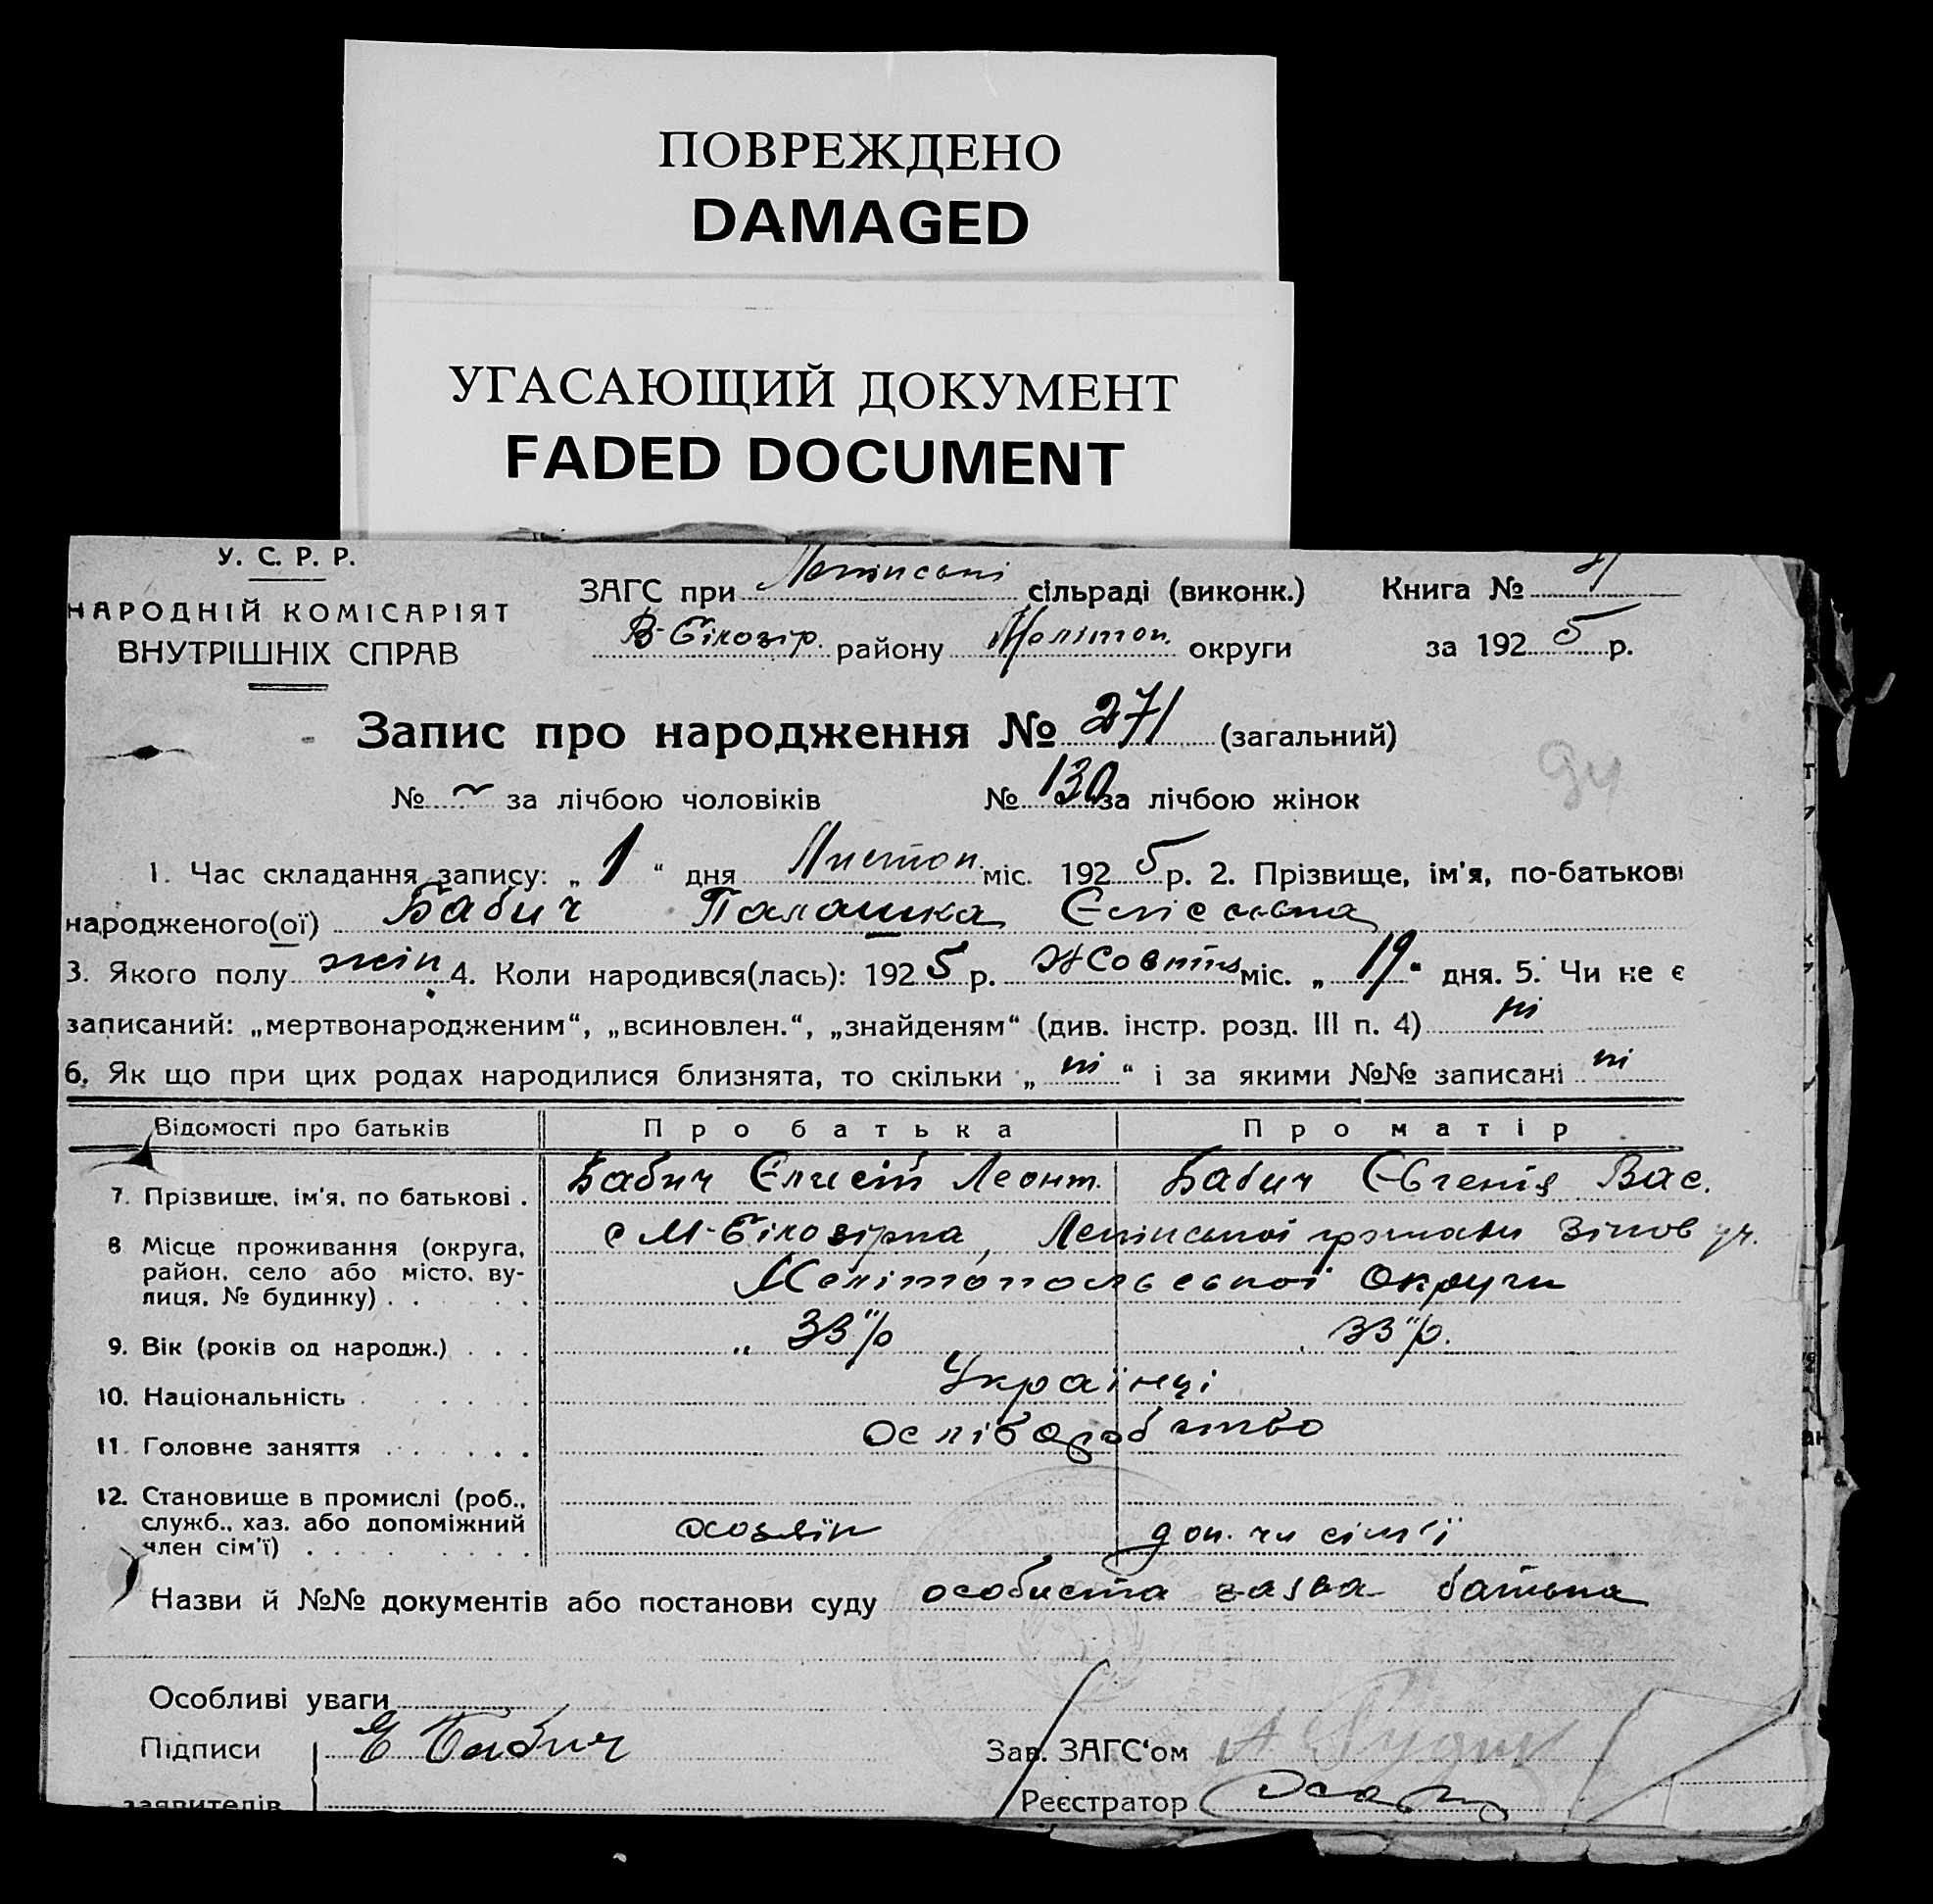 ПОВРЕЖДЕНО
DAMAGED
УГАСАЮЩИЙ ДОКУМЕНТ
FADED DOCUMENT
У. С. Р. Р.
НАРОДНІЙ КОМІСАРІЯТ
ВНУТРІШНІХ СПРАВ
ЗАГС при сільраді (виконк.) Книга №
В-Білозір. району Мелітоп. округи за 192 5 р.
Запис про народження № 271 (загальний)
№ за лічбою чоловіків № 130 за лічбою жінок
94
1. Час складання запису: „ 1 “ дня Листоп. міс. 192 5 р. 2. Прізвище, ім'я, по-батькові
народженого(ої) Бабич Палашка
3. Якого полу жін 4. Коли народився(лась): 192 5 р. Жовтня міс. „ 19 “ дня. 5. Чи не є
записаний: „мертвонародженим“, „всиновлен.“, „знайденям“ (див. інстр. розд. III п. 4) ні
6. Як що при цих родах народилися близнята, то скільки „ ні “ і за якими №№ записані ні
Відомості про батьків Про батька Про матір
7. Прізвище, ім'я, по батькові . Бабич Єлисей Леонт. Бабич Євгенія Вас.
8 Місце проживання (округа, район, село або місто, вулиця, № будинку) . . с М-Білозірка, Ленінської громади
Мелітопольської Округи
9. Вік (років од народж.) . . . 33 33
10. Національність Українці
11. Головне заняття
12. Становище в промислі (роб., служб., хаз. або допоміжний член сім'ї) хозяїн доп. чл сім'ї
Назви й №№ документів або постанови суду особиста заява батька
Особливі уваги
Підписи Є Бабич Зав. ЗАГС‘ом
заявителів Реєстратор